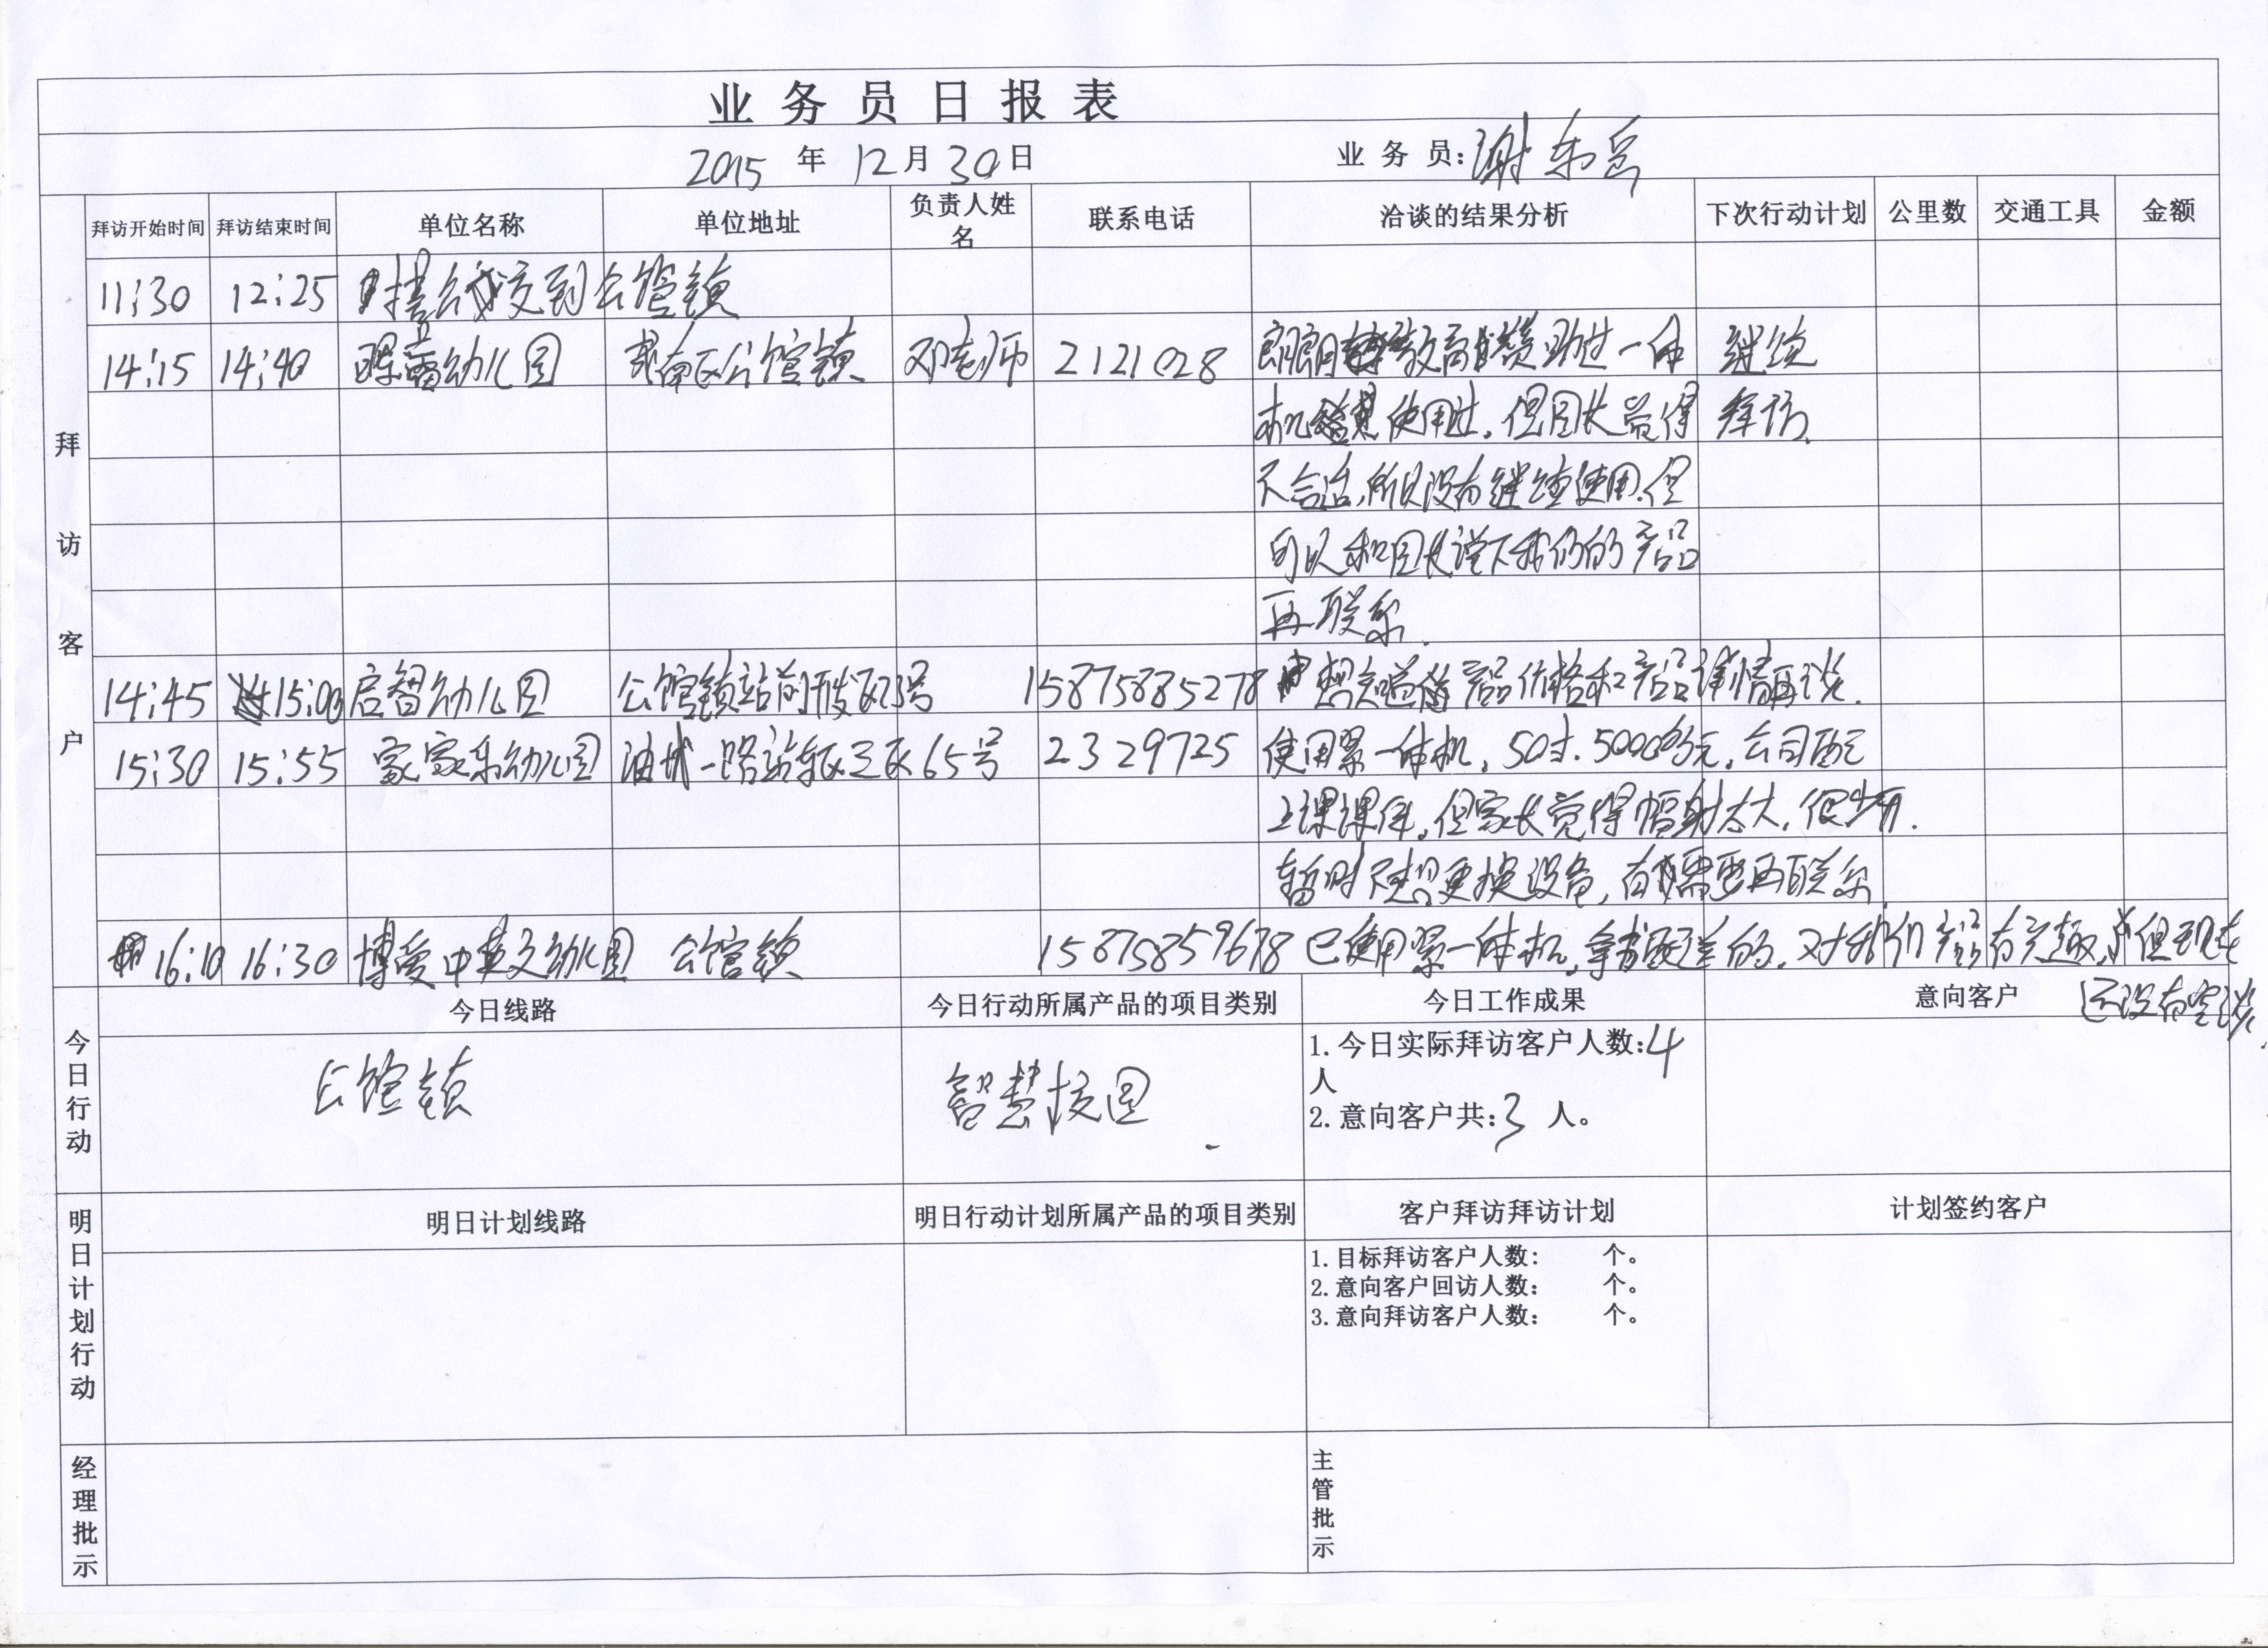 业务员日报表
2015 年 12 月 30 日 业务员:谢东岳
拜访开始时间 拜访结束时间 单位名称 单位地址 负责人姓名 联系电话 洽谈的结果分析 下次行动计划 公里数 交通工具 金额
拜访客户
11:30 12:25 公交到公馆镇
14:15 14:40 幼儿园 茂南区公馆镇 邓老师 2121028 朗朗教育赞助过一体 继续
机使用过。但园长觉得 拜访
不合适,所以没有继续使用。但
可以和园长说下我们的产品
再联系.
14:45 15:00 启智幼儿园 公馆镇站前开发区73号 15875885278 想知道产品价格和产品详情再谈.
15:30 15:55 家家乐幼儿园 油城一路站东区三区65号 2329725 使用累一体机。50寸.5000多元。公司配
上课课件。但家长觉得幅射太大,很少用.
暂时不想更换设备,有需要再联系
16:10 16:30 博爱中英文幼儿园 公馆镇 15875859678 已使用累一体机,拿书配送的,对我们产品有兴趣,但现在
还没有空谈.
今日行动
今日线路 今日行动所属产品的项目类别 今日工作成果 意向客户
公馆镇 智慧校园 1.今日实际拜访客户人数:4
人
2.意向客户共:3 人。
明日计划行动
明日计划线路 明日行动计划所属产品的项目类别 客户拜访拜访计划 计划签约客户
1.目标拜访客户人数: 个。
2.意向客户回访人数: 个。
3.意向拜访客户人数: 个。
经理批示 主管批示